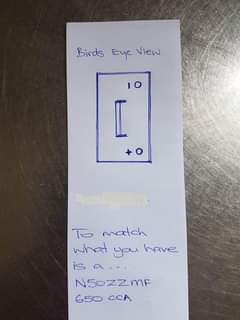 Birds Eye View
IO
+O
To match
what you have
is a...
N50ZZMF
650 CCA